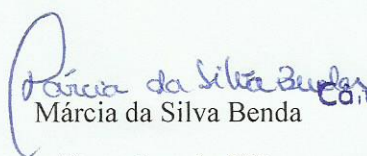 Márcia da Silva Benda
Márcia da Silva Benda